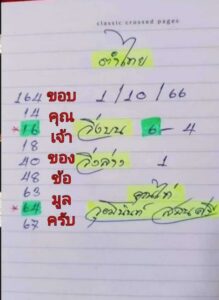 classic crossed pages
ตำไทย
164 ขอบ 1/10/66
14 คุณ
*16 เจ้า วิ่งบน 6-4
18
40 ของ วิ่งล่าง 1
48 ข้อ
63 มูล
*64 ครับ
67